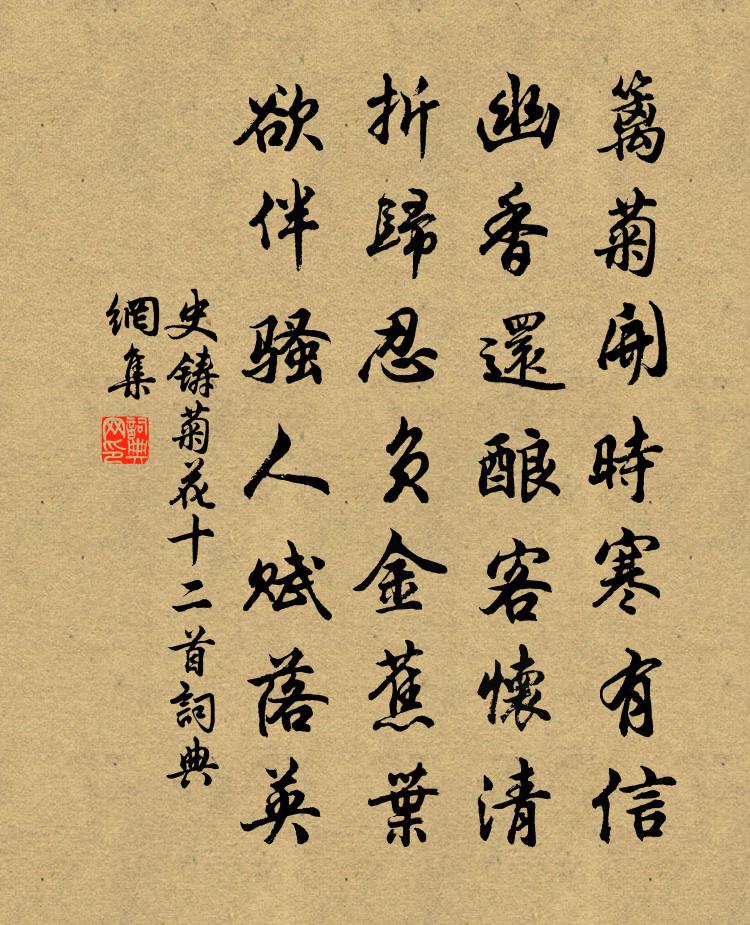 籬菊開時寒有信
幽香還酿客懷清
折歸忍负金蕉葉
欲伴騷人赋落英
史鋳菊花十二首詞典
網集
詞典
网印